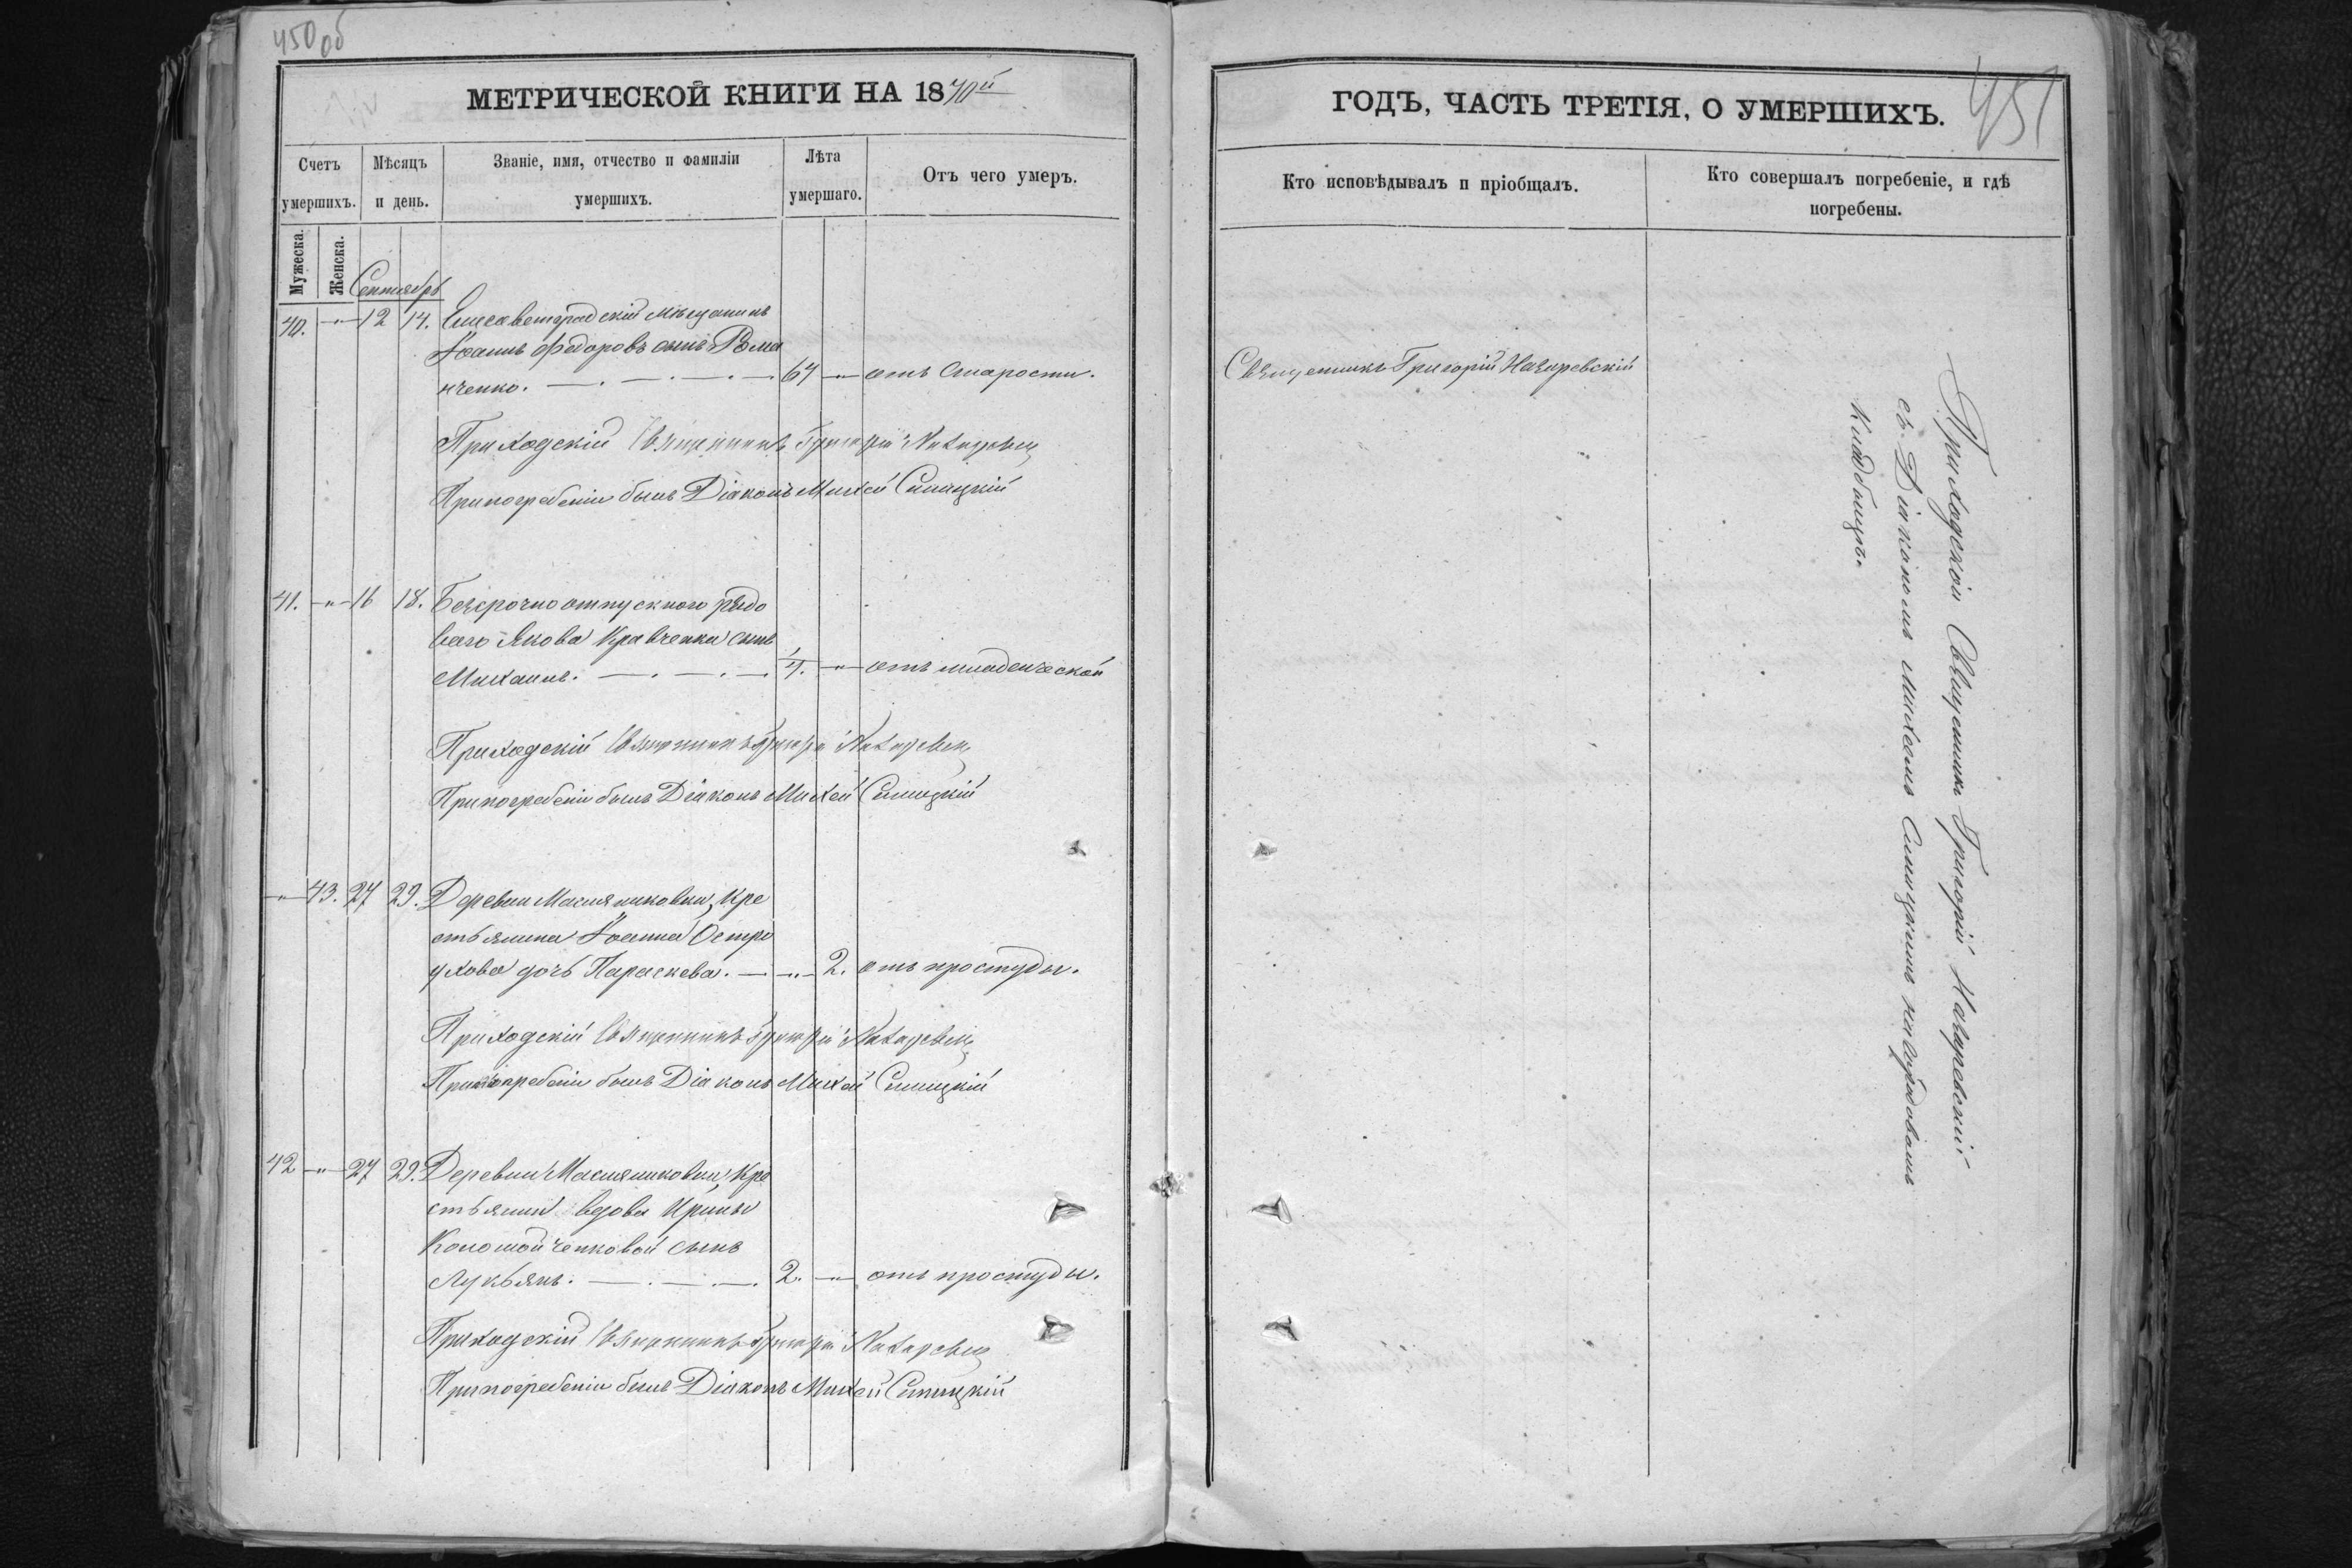 450 об
МЕТРИЧЕСКОЙ КНИГИ НА 1870й
Счетъ умершихъ.
Мѣсяцъ и день.
Званіе, имя, отчество и фамиліи умершихъ.
Лѣта умершаго.
Отъ чего умеръ.
Мужеска.
Женска.
Сентябрь
40. " 12 14. Елисаветградскій мѣщанинъ
Іоаннъ Федоровъ сынъ Рома
нченко. 64 " отъ старости.
Приходскій Священникъ Григорій
При погребеніи былъ Діаконъ Михей Синицкій
41. " 16 18. Безсрочно отпускного рядо
ваго Якова Кравченка сынъ
Михаилъ. " отъ младенческой
Приходскій Священникъ Григорій
При погребеніи былъ Діаконъ Михей Синицкій
" 43. 27 29. Деревни Масляниковки, Кре
стьянина Іоанна Остро
ухова дочь Параскева. " 2. отъ простуды.
Приходскій Священникъ Григорій
При погребеніи былъ Діаконъ Михей Синицкій
42 " 27 29. Деревни Масляниковки, Кре
стьянки вдовы Ирины
сынъ
Лукьянъ. 2. " отъ простуды.
Приходскій Священникъ Григорій
При погребеніи былъ Діаконъ Михей Синицкій
ГОДЪ, ЧАСТЬ ТРЕТІЯ, О УМЕРШИХЪ.
451
Кто исповѣдывалъ и пріобщалъ.
Кто совершалъ погребеніе, и гдѣ
погребены.
Священникъ Григорій Назаревскій
Приходскій Священникъ Григорій Назаревскій
съ Діакономъ Михеемъ Синицкимъ на
кладбищѣ.